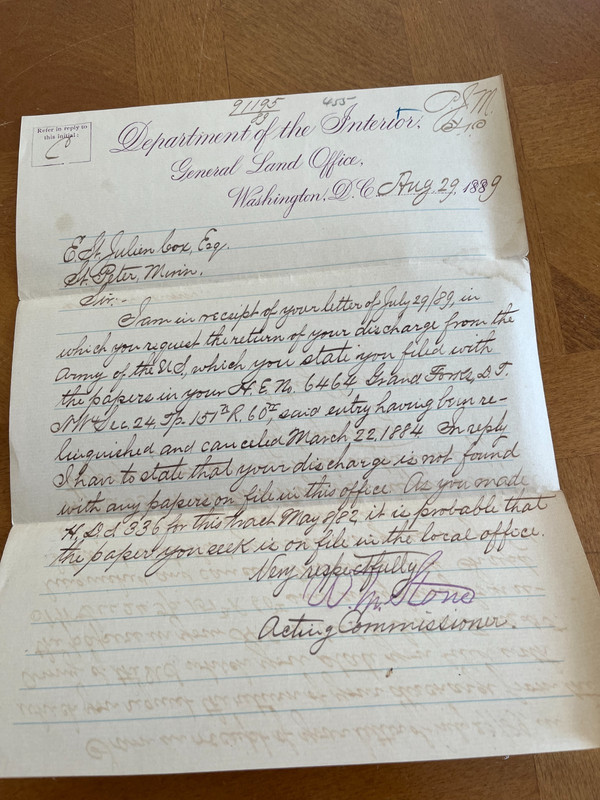 91195
89
455
Refer in reply to
this initial:
C
Department of the Interior,
General Land Office,
Washington, D.C. Aug 29, 1889
E St Julien Cox, Esq.
St. Peter, Minn.
Sir:-
I am in receipt of your letter of July 29/89, in
which you request the return of your discharge from the
Army of the U.S, which you state you filed with
the papers in your H. E. No. 6464, Grand Forks, D.T.
NW4 Sec. 24, Tp. 151 R. 60, said entry having been re-
linquished and canceled March 22, 1884. In reply
I have to state that your discharge is not found
with any papers on file in this office. As you made
H. D. S 336 for this tract May 8/82, it is probable that
the paper you seek is on file in the local office.
Very respectfully
W. M. Stone
Acting Commissioner.